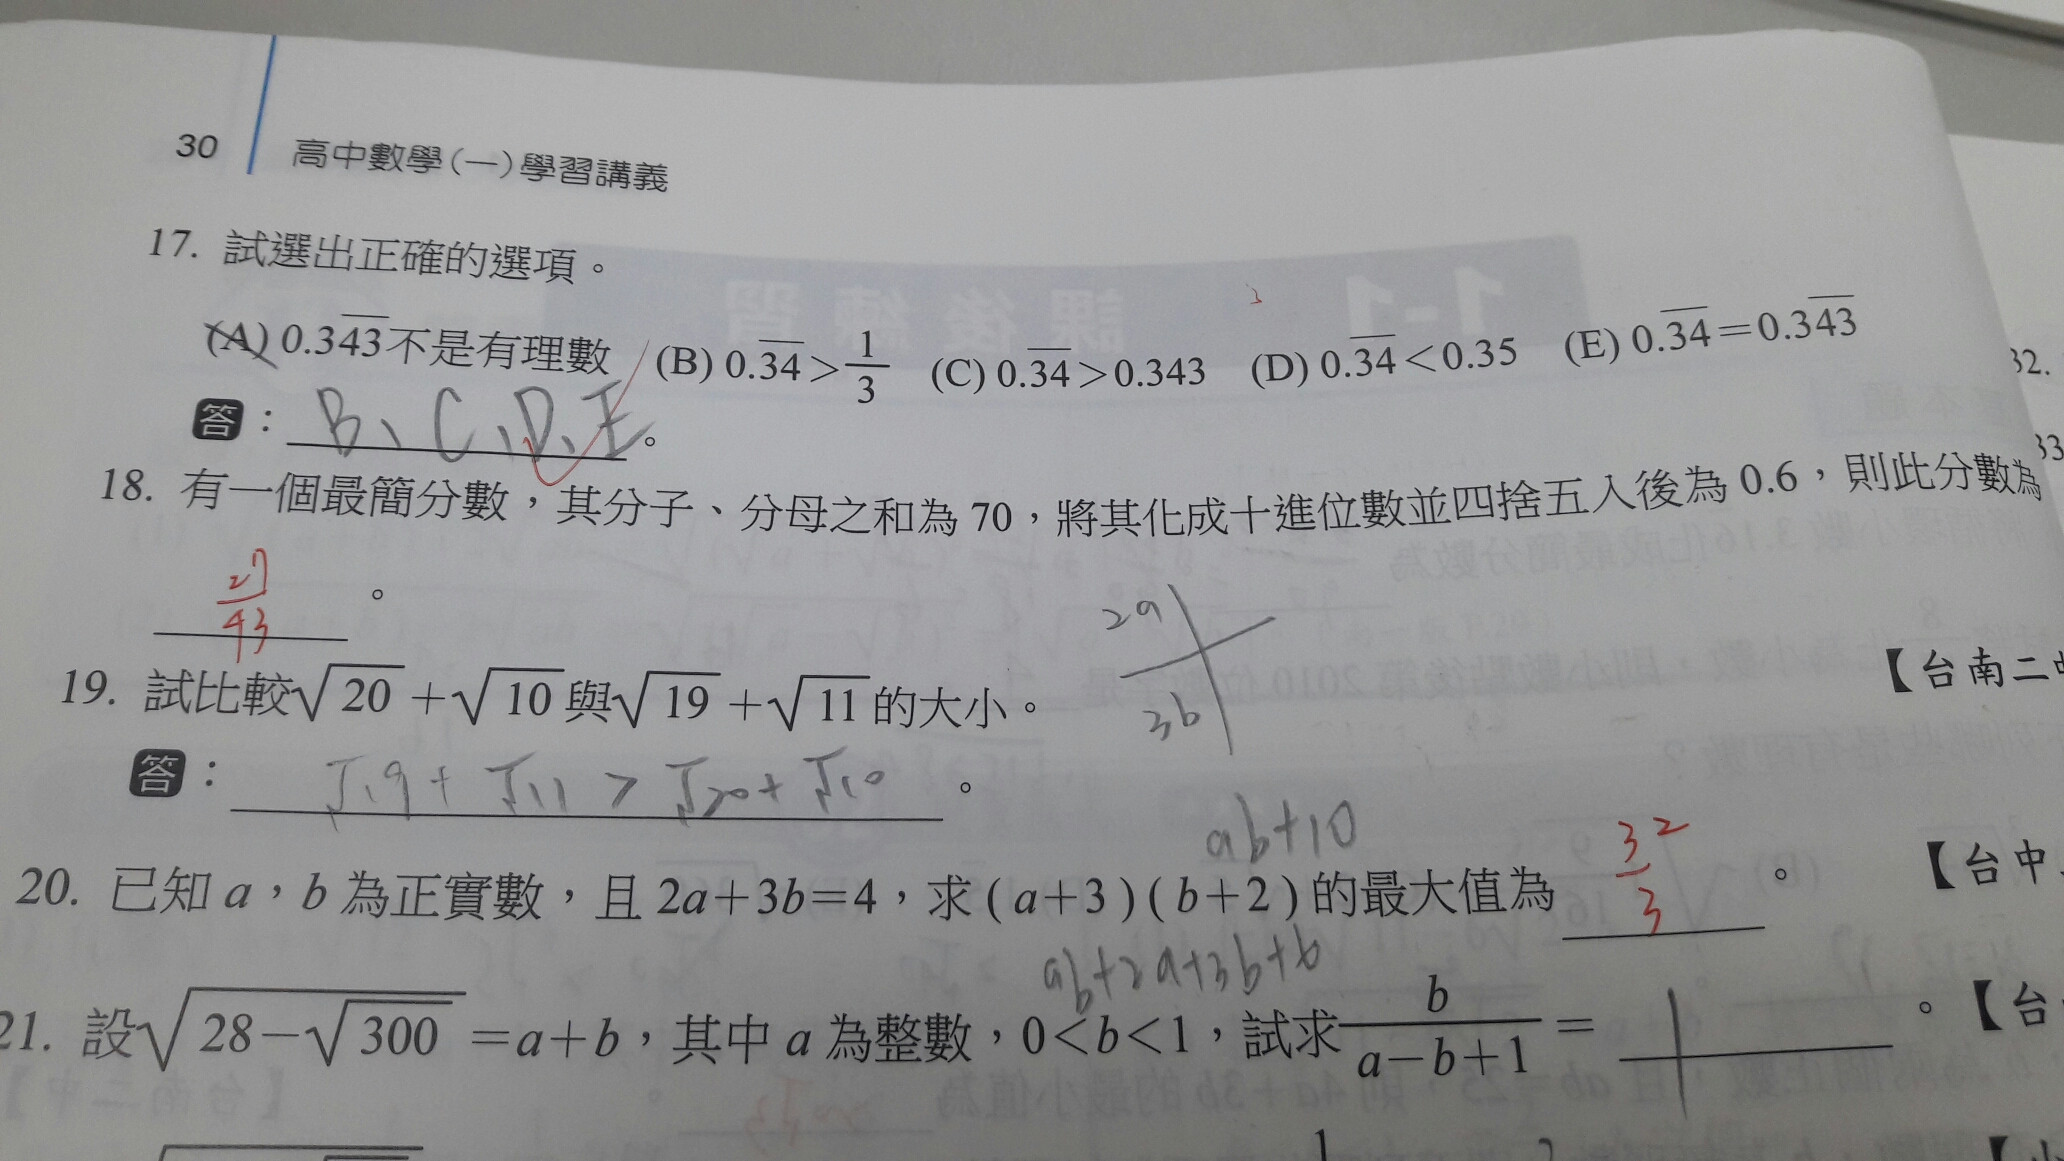 30 高中數學(一)學習講義
17. 試選出正確的選項。
(A) 0.3\overline{43}不是有理數 (B) 0.\overline{34}>\frac{1}{3} (C) 0.\overline{34}>0.343 (D) 0.\overline{34}<0.35 (E) 0.\overline{34}=0.3\overline{43}
答：B、C、D、E。
18. 有一個最簡分數，其分子、分母之和為 70，將其化成十進位數並四捨五入後為 0.6，則此分數為
27/43。
2a
3b
【台南二中
19. 試比較√20+√10與√19+√11的大小。
答：√19+√11>√20+√10。
ab+10
20. 已知 a，b 為正實數，且 2a+3b=4，求(a+3)(b+2)的最大值為 32/3。【台中
ab+2a+3b+6
21. 設√(28-√300)=a+b，其中 a 為整數，0<b<1，試求 b/(a-b+1)= 1。【台
32.
33